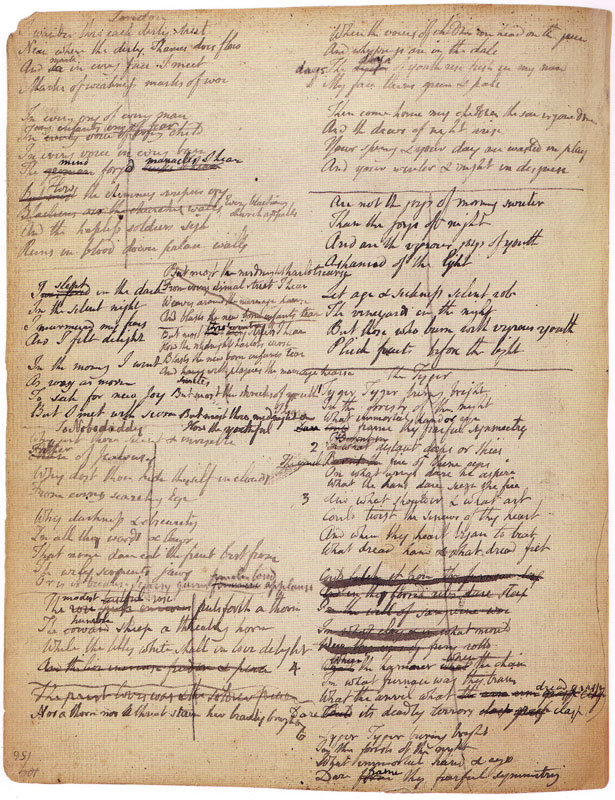 London
I wander thro each dirty street
Near where the dirty Thames does flow
And see in every face I meet
mark
Marks of weakness marks of woe
In every cry of every man
In every voice of every child
In every voice in every ban
The german forgd manacles I hear
mind
But how the chimney sweepers cry
Blackens oer the churches walls
Every blackning church appalls
And the hapless soldiers sigh
Runs in blood down palace walls
But most the midnight harlots curse
From every dismal street I hear
Weaves around the marriage hearse
And blasts the new born infants tear
But most thro midnight streets I hear
How the midnight harlots curse
Blasts the new born infants tear
And hangs with plagues the marriage hearse
But most the shrieks of youth I hear
But most thro midnight &
How the youthful
I slept in the dark
In the silent night
I murmured my fears
And I felt delight
In the morning I went
As rosy as morn
To seek for new Joy
But I met with scorn
To Nobodaddy
Why art thou silent & invisible
Father of Jealousy
Why dost thou hide thyself in clouds
From every searching Eye
Why darkness & obscurity
In all thy words & laws
That none dare eat the fruit but from
The wily serpents jaws
Or is it because Secresy gains females loud applause
The modest rose puts forth a thorn
The humble coward sheep a threatning horn
While the lilly white shall in love delight
Nor a thorn nor a threat stain her beauty bright
When the voices of children are heard on the green
And whisprings are in the dale
The days of youth rise fresh in my mind
My face turns green & pale
Then come home my children the sun is gone down
And the dews of night arise
Your spring & your day are wasted in play
And your winter & night in disguise
Are not the joys of morning sweeter
Than the joys of night
And are the vigrous joys of youth
Ashamed of the light
Let age & sickness silent rob
The vineyards in the night
But those who burn with vigrous youth
Pluck fruits before the light
The Tyger
1 Tyger Tyger burning bright
In the forests of the night
What immortal hand or eye
Dare frame thy fearful symmetry
2 In what distant deeps or skies
Burnt the fire of thine eyes
On what wings dare he aspire
What the hand dare sieze the fire
3 And what shoulder & what art
Could twist the sinews of thy heart
And when thy heart began to beat
What dread hand & what dread feet
Could fetch it from the furnace deep
And in thy horrid ribs dare steep
In the well of sanguine woe
4 What the hammer what the chain
In what furnace was thy brain
What the anvil what dread grasp
Dare its deadly terrors clasp
6 Tyger Tyger burning bright
In the forests of the night
What immortal hand & eye
Dare frame thy fearful symmetry
156